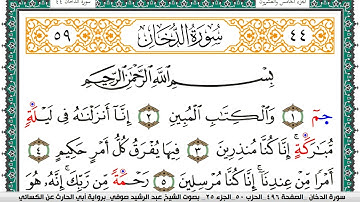 الجزء الخامس والعشرون سورة الدخان ٤٤
٤٤ سُورَةُ الدُّخَانِ ٥٩
بِسْمِ اللَّهِ الرَّحْمَٰنِ الرَّحِيمِ
حمٓ ١ وَالْكِتَابِ الْمُبِينِ ٢ إِنَّا أَنزَلْنَاهُ فِي لَيْلَةٍ
مُّبَارَكَةٍ إِنَّا كُنَّا مُنذِرِينَ ٣ فِيهَا يُفْرَقُ كُلُّ أَمْرٍ حَكِيمٍ ٤
أَمْرًا مِّنْ عِندِنَا إِنَّا كُنَّا مُرْسِلِينَ ٥ رَحْمَةً مِّن رَّبِّكَ إِنَّهُ هُوَ
سورة الدخان - الصفحة ٤٩٦ - الحزب ٥٠ - الجزء ٢٥ - بصوت الشيخ عبد الرشيد صوفي - برواية أبي الحارث عن الكسائي